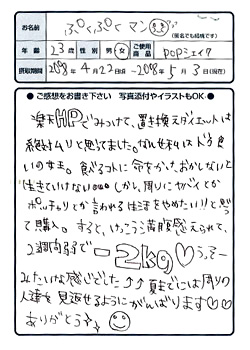 お名前 ぷくぷくマン (匿名でも結構です)
年齢 23歳 性別 男・女 ご使用商品 POPシェイク
摂取期間 2008年4月22日~2008年5月3日(現在)
●ご感想をお書き下さい 写真添付やイラストもOK●
楽天HPでみつけて、置き換えダイエットは
絶対ムリと思ってました。なんせ私はドカ食
いの女王。食べるコトに命をかけ、おかしないと
生きていけない。しかし、周りにヤバイとか
ポッチャリとか言われる生活をやめたい!!と思っ
て購入。すると、けっこう満腹感えられて、
2週間弱で-2kg♡うっそー
みたいな感じでした♪♪夏までには周りの
人達を見返せるようにがんばります♡♡
ありがとう